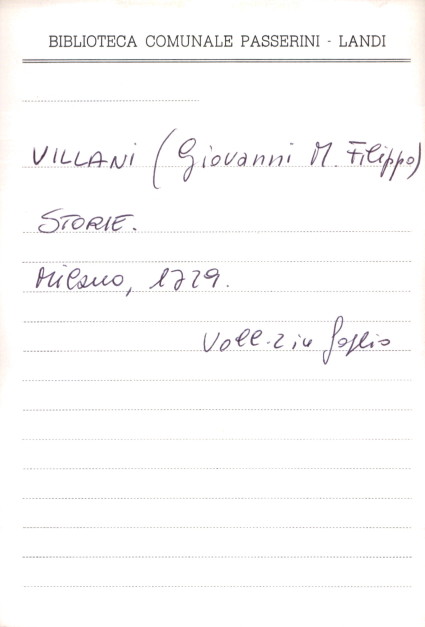 BIBLIOTECA COMUNALE PASSERINI - LANDI
VILLANI (Giovanni M. Filippo)
STORIE.
Milano, 1729.
Voll. 2 in foglio